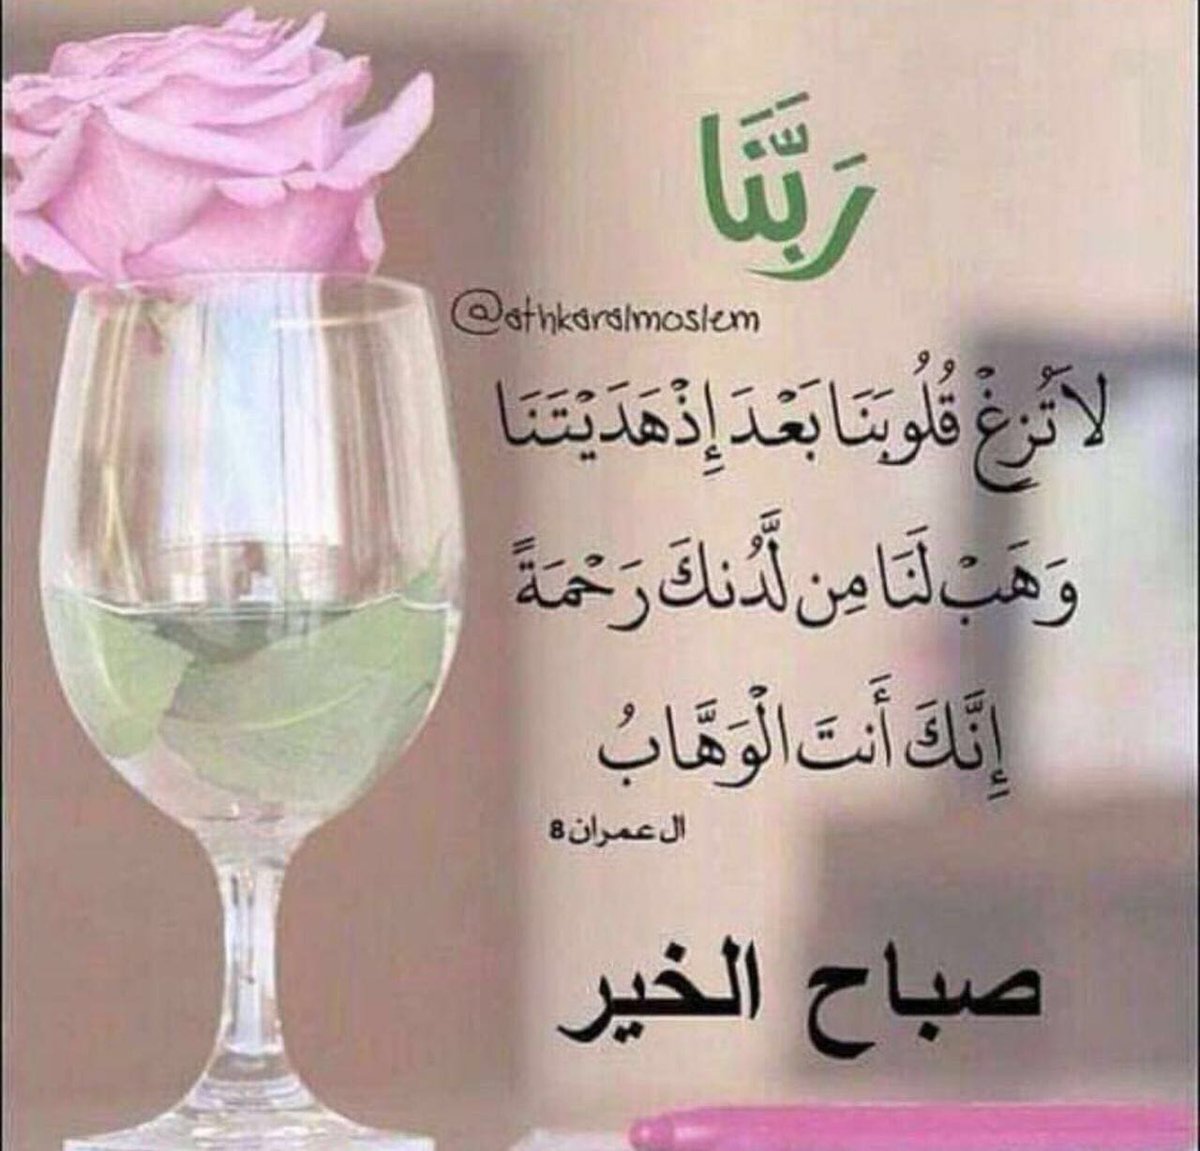 رَبَّنَا
@athkaralmoslem
لَا تُزِغْ قُلُوبَنَا بَعْدَ إِذْ هَدَيْتَنَا
وَهَبْ لَنَا مِن لَّدُنكَ رَحْمَةً
إِنَّكَ أَنتَ الْوَهَّابُ
ال عمران 8
صباح الخير